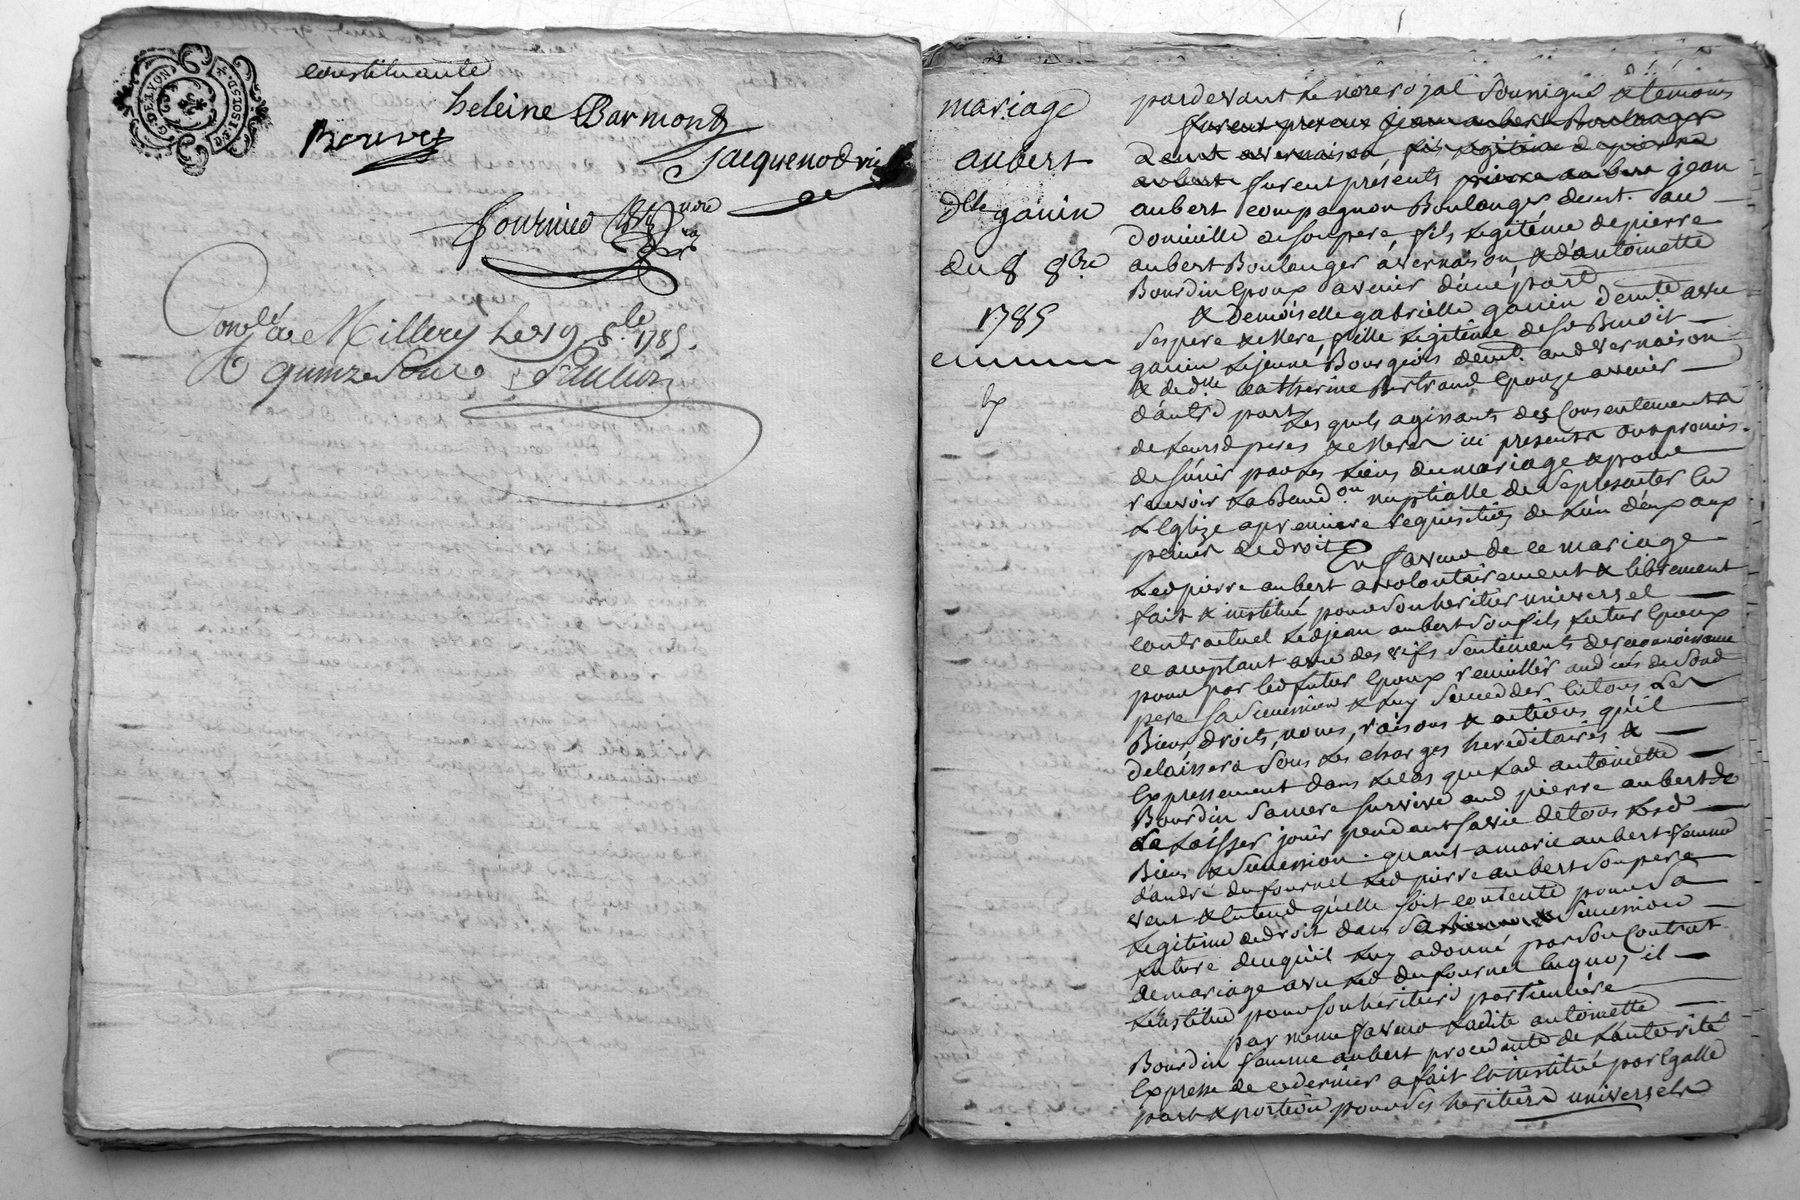 G. DE LYON
constituante
heleine Barmond
Bouvey
Jacquenod
fournier nore
Conlé a Millery le 19 8.bre 1785.
R quinze sous Paulin
mariage
aubert
dlle ganin
du 8 8bre
1785
pardevant le nore royal soussigné & temoins
furent presens jean aubert Boulanger
demt a vernaison, fils legitime de pierre
aubert furent présents pierre aubert jean
aubert compagnon Boulanger demt. au
domicille de son pere, fils legitime de pierre
aubert Boulanger a vernaison, & d'antoinette
Bourdin epoux avenir d'une part
& demoiselle gabrielle ganin demte avec
ses pere & Mere, fille legitime de sr Benoit
ganin le jeune Bourgeois demt. aud vernaison
& de dlle catherine Bertrand epouze avenir
d'autre part
Les quels agissants des Consentements
de leurs d peres & Meres ici presents ont promis
de s'unir par les liens du mariage & pour
recevoir la Bened.on nuptialle de se presenter en
L'Eglize a premiere requisition de l'un d'eux aux
peines de droit En faveur de ce mariage
Led pierre aubert a volontairement & librement
fait & institué pour son heritier universel
contractuel led jean aubert son fils futur Epoux
ce acceptant avec des vifs sentiments de reconnoissance
pour par led futur Epoux recueillir aud cas de sond
pere sa succession & luy succeder en tous les
Biens, droits, noms, raisons & actions qu'il
delaissera sous les charges hereditaires &
Expressement dans le cas que lad antoinette
Bourdin sa mere survive aud pierre aubert de
La laisser jouir pendant sa vie de tous led
Biens & succession. quant a marie aubert femme
d'andré dufournel led pierre aubert son pere
veut & entend qu'elle soit contente pour sa
legitime de droit dans sa succession
future de ce qu'il luy a donné par son Contrat
de mariage avec led dufournel en quoy il
L'institue pour son heritiere particuliere
par meme faveur ladite antoinette
Bourdin femme aubert procedante de l'autorité
Expresse de ce dernier a fait & institué par Egalle
part & portion pour ses heritiers universels